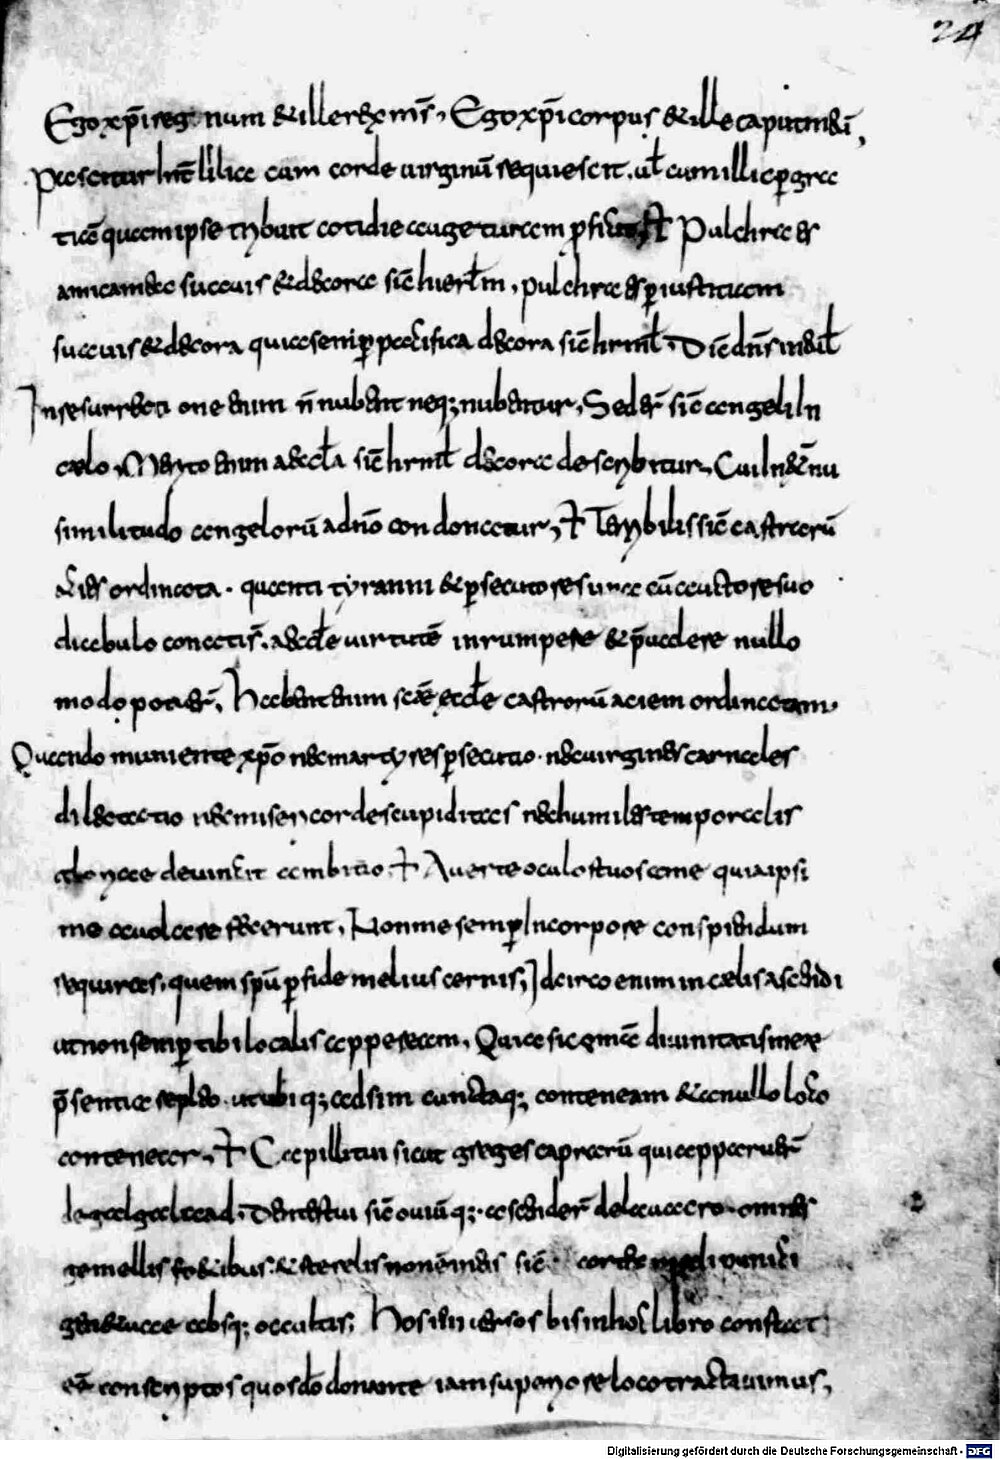 24
Ego xp̄i regnum & ille rex ms̄, Ego xp̄i corpus & ille caput m̄ ē,
Pascitur int̄ lilia cum corde virginū requiescit. ul̄ cum illi p̄ gra
tiā quam ipse tribuit cotidie augeturam Pulchra es
amica mea suavis & decora sic̄ hierl̄m, pulchra es p̄ iustitiam
suavis & decora quia semp̄ pacifica decora sic̄ hrml̄. Dic̄ dn̄s
In resurrectione enim n̄ nubent neq; nubentur, Sed er̄ sic̄ angeli In
caelo, Merito enim aeccl̄a sic̄ hrml̄ decora describitur, Cui
similitudo angelorū a dn̄o condonatur, Terribilis sic̄ castrorū
acies ordinata. quanti tyranni & p̄secutores una cū auctore suo
diabulo conatis̄. aeccl̄e virtutē inrumpere & p̄valere nullo
modo poter̄, Habent enim sc̄ae eccl̄e castrorū aciem ordinatam.
Quando muniente xp̄o nec martyres p̄secutio. nec virgines carnales
dilectio nec misericordes cupiditas nec humiles temporalis
devincit ambitio. Averte oculos tuos a me quia ipsi
me avolare fecerunt, Non me semp̄ In corpore conspiciendum
requiras, quem spū p̄ fide melius cernis, Idcirco enim in caelis ascendi
ut non semp̄ tibi localis appaream, Quia sic om̄e divinitatis meae
p̄sentia repleo. ut ubiq; adsim cunctaq; conteneam & a nullo loco
contenear, Capilli tui sicut greges caprarū qui apparuer̄
de galgalaad, Dentes tui sic̄ oviū q; ascender̄ de lavacro. omnes
gemellis fetibus. & sterelis non ē in eis sic̄ cortex mali punici
genae tuae absq; occultis, Hos in versos bis in hoc libro constat
eē conscriptos quos dō donante iam superiore loco tractavimus,
Digitalisierung gefördert durch die Deutsche Forschungsgemeinschaft - DFG